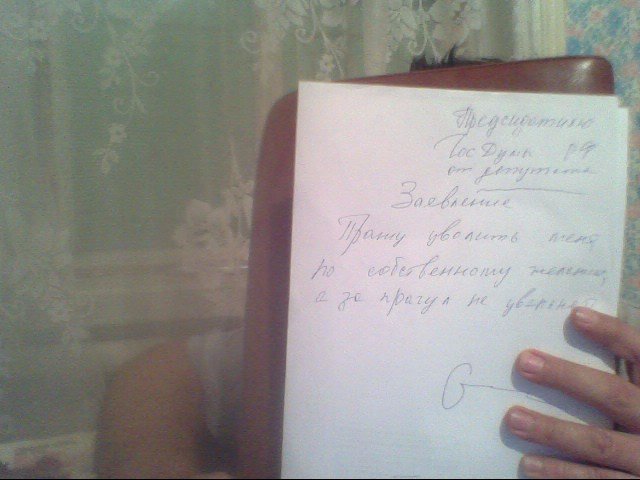 Председателю
Гос Думы РФ
от депутата
Заевление
Прашу уволить меня,
по собственному желению,
а за прагул не увольнят